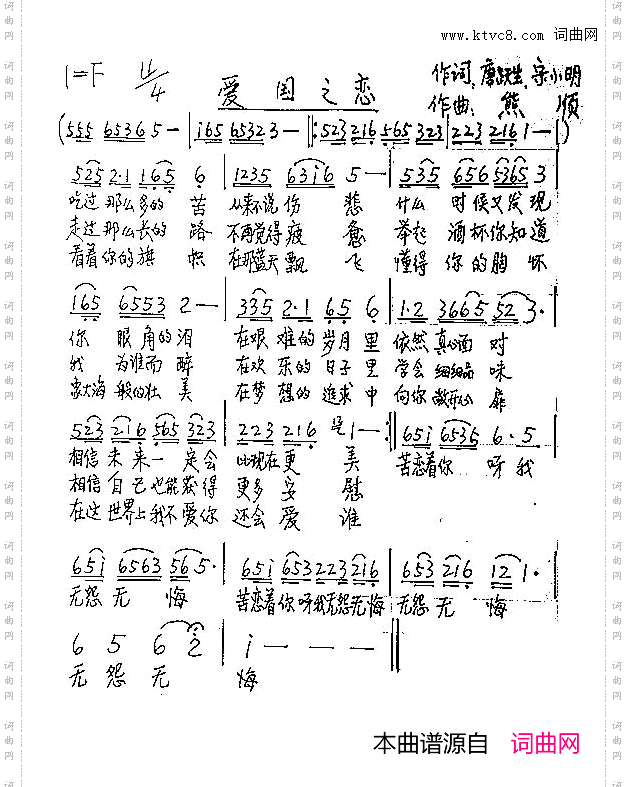 www.ktvc8.com 词曲网
1=F 4/4
爱国之恋
作词: 唐跃生、宋小明
作曲: 熊 顺
(555 65365 - | i65 65323 - |: 523 216 565 323 | 223 216 1 - )
525 2·1 165 6 | 1235 63i6 5 - | 535 656 5365 3
吃过 那么多的 苦 从来不说 伤 悲 什么 时候又发现
走过 那么长的 路 不再觉得 疲 惫 举起 酒杯你知道
看着 你的旗 帜 在那蓝天 飘 飞 懂得 你的胸怀
165 6553 2 - | 335 2·1 65 6 | 1·2 3665 52 3·
你 眼角的泪 在艰难的岁月里 依然真心面对
我 为谁而醉 在欢乐的日子里 学会细细品味
象大海般的壮美 在梦想的追求中 向你敞开心扉
523 216 565 323 | 223 216 1 - :| 65i 6535 6·5
相信 未来一定会 比现在更 美 苦恋着你 呀我
相信自己也能获得 更多安慰
在这世界上我不爱你 还会爱谁
65i 6563 56 5· | 65i 653 223 216 | 653 216 12 1·
无怨无 悔 苦恋着你呀我无怨无悔 无怨无 悔
6 5 6 2 | i - - -
无怨无 悔
本曲谱源自 词曲网